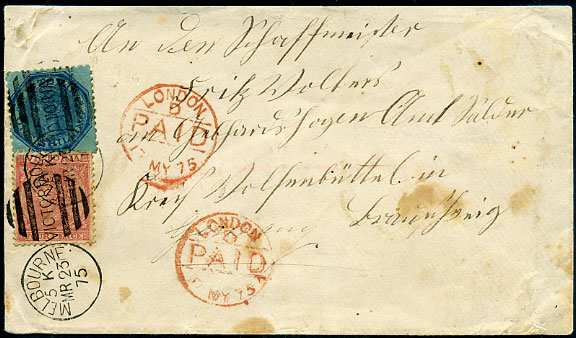 An den Schaffmeister
Fritz Wolters
in Gebhardshagen Amt Salder
Kreis Wolfenbüttel in
Braunschweig
LONDON
PAID
MY 75
LONDON
PAID
MY 75
VICTORIA
MELBOURNE
5 K
MR 23
75